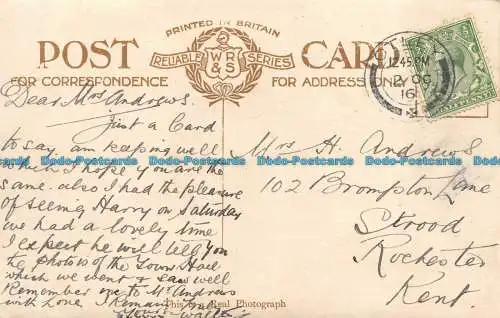 PRINTED IN BRITAIN
POST CARD
RELIABLE WR&S SERIES
FOR CORRESPONDENCE
FOR ADDRESS ONLY
12.45 PM
2 OC
16
Dear Mrs Andrews.
Just a Card
to say am keeping well
which I hope you are the
same. also I had the pleasure
of seeing Harry on Saturday
we had a lovely time
I expect he will tell you
the photo is of the Town Hall
which we went & saw well
Remember me to Mr Andrews
with Love I Remain
Yours
This is a Real Photograph
Mrs H. Andrews
102 Brompton Lane
Strood
Rochester
Kent.
Dodo-Postcards Dodo-Postcards Dodo-Postcards Dodo-Postcards